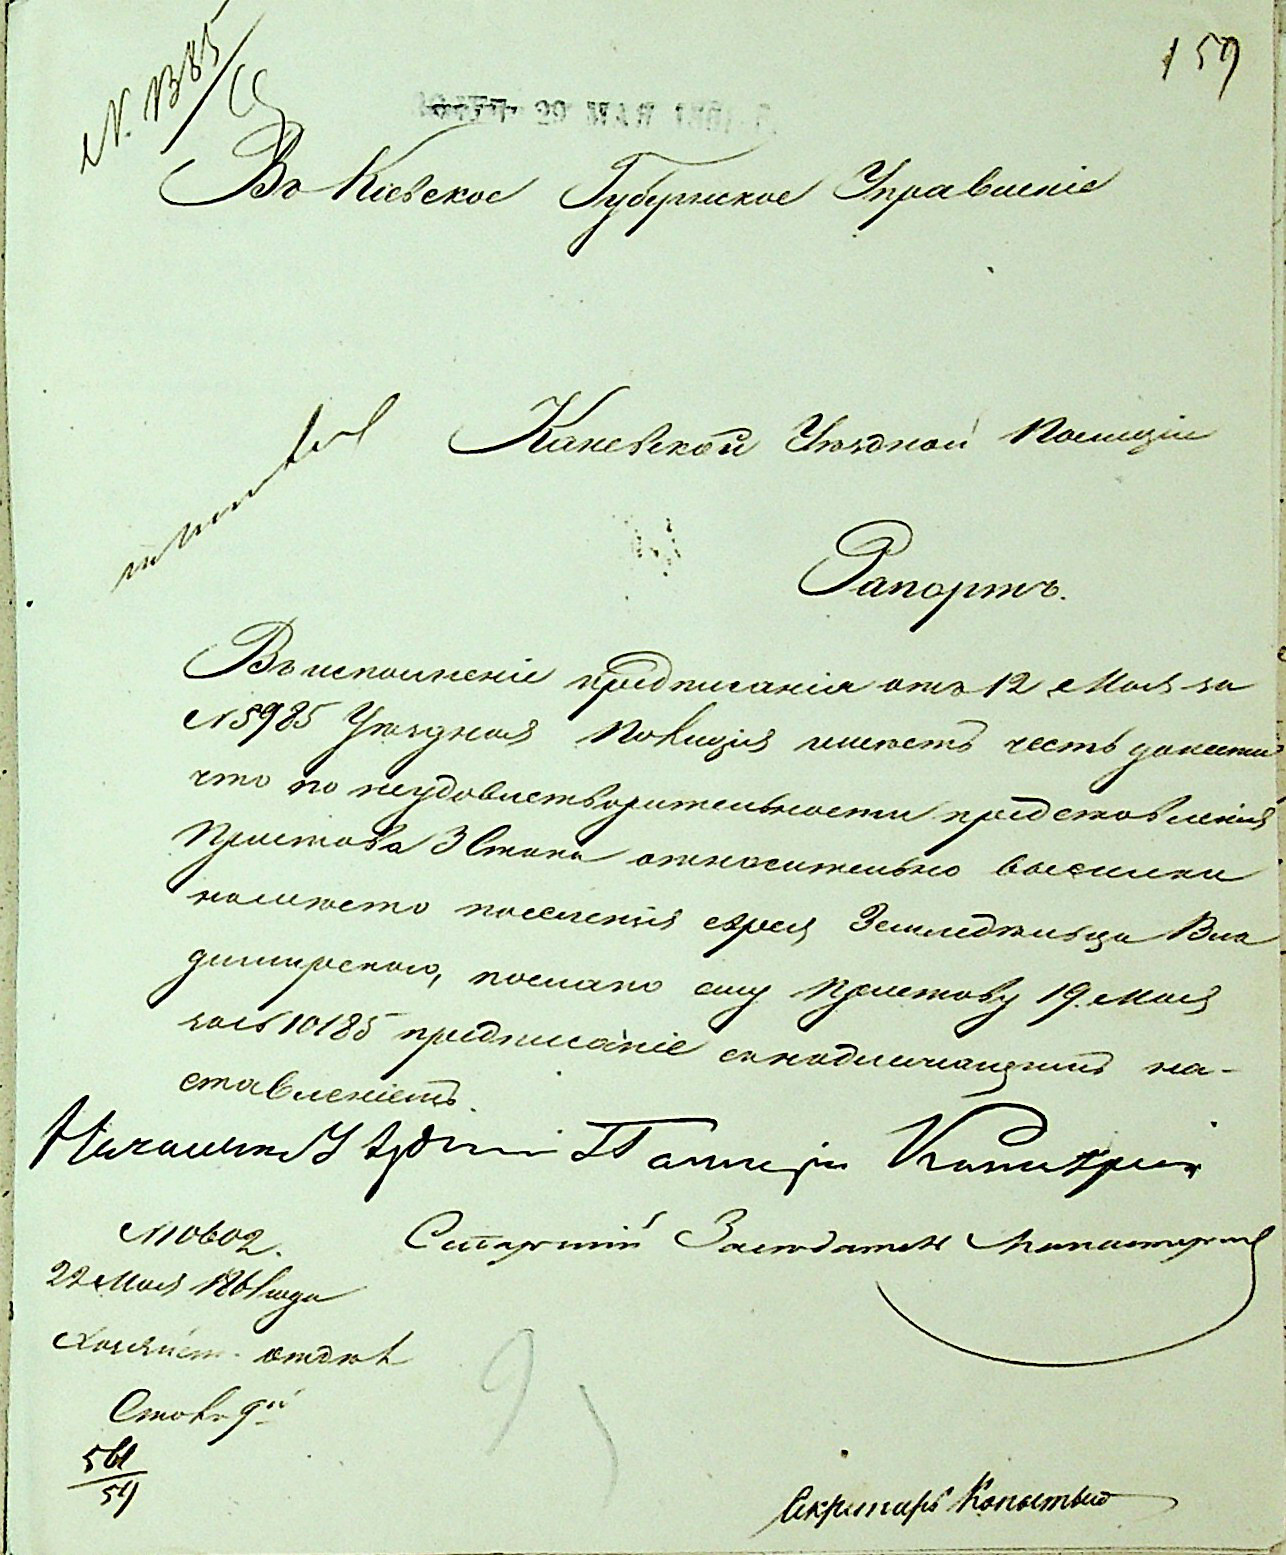 159
Въ Кіевское Губернское Управленіе
Каневской Уѣздной Полиціи
Рапортъ.
Въ исполненіе предписанія отъ 12 Мая за
№ 5985 Уѣздная Полиція имѣетъ честь донести
что по неудовлетворительности представленія
Пристава 3 Стана относительно высылки
на мѣсто поселенія еврея Земледѣльца Вла
димирскаго, послано ему Приставу 19 Мая
за № 10185 предписаніе съ надлежащимъ на-
ставленіемъ.
Начальникъ Уѣздной Полиціи
Старшій Засѣдатель
№ 10602.
22 Мая 1861 года
Хозяйст. отдѣл
Столъ 9й
561
59
Секретарь